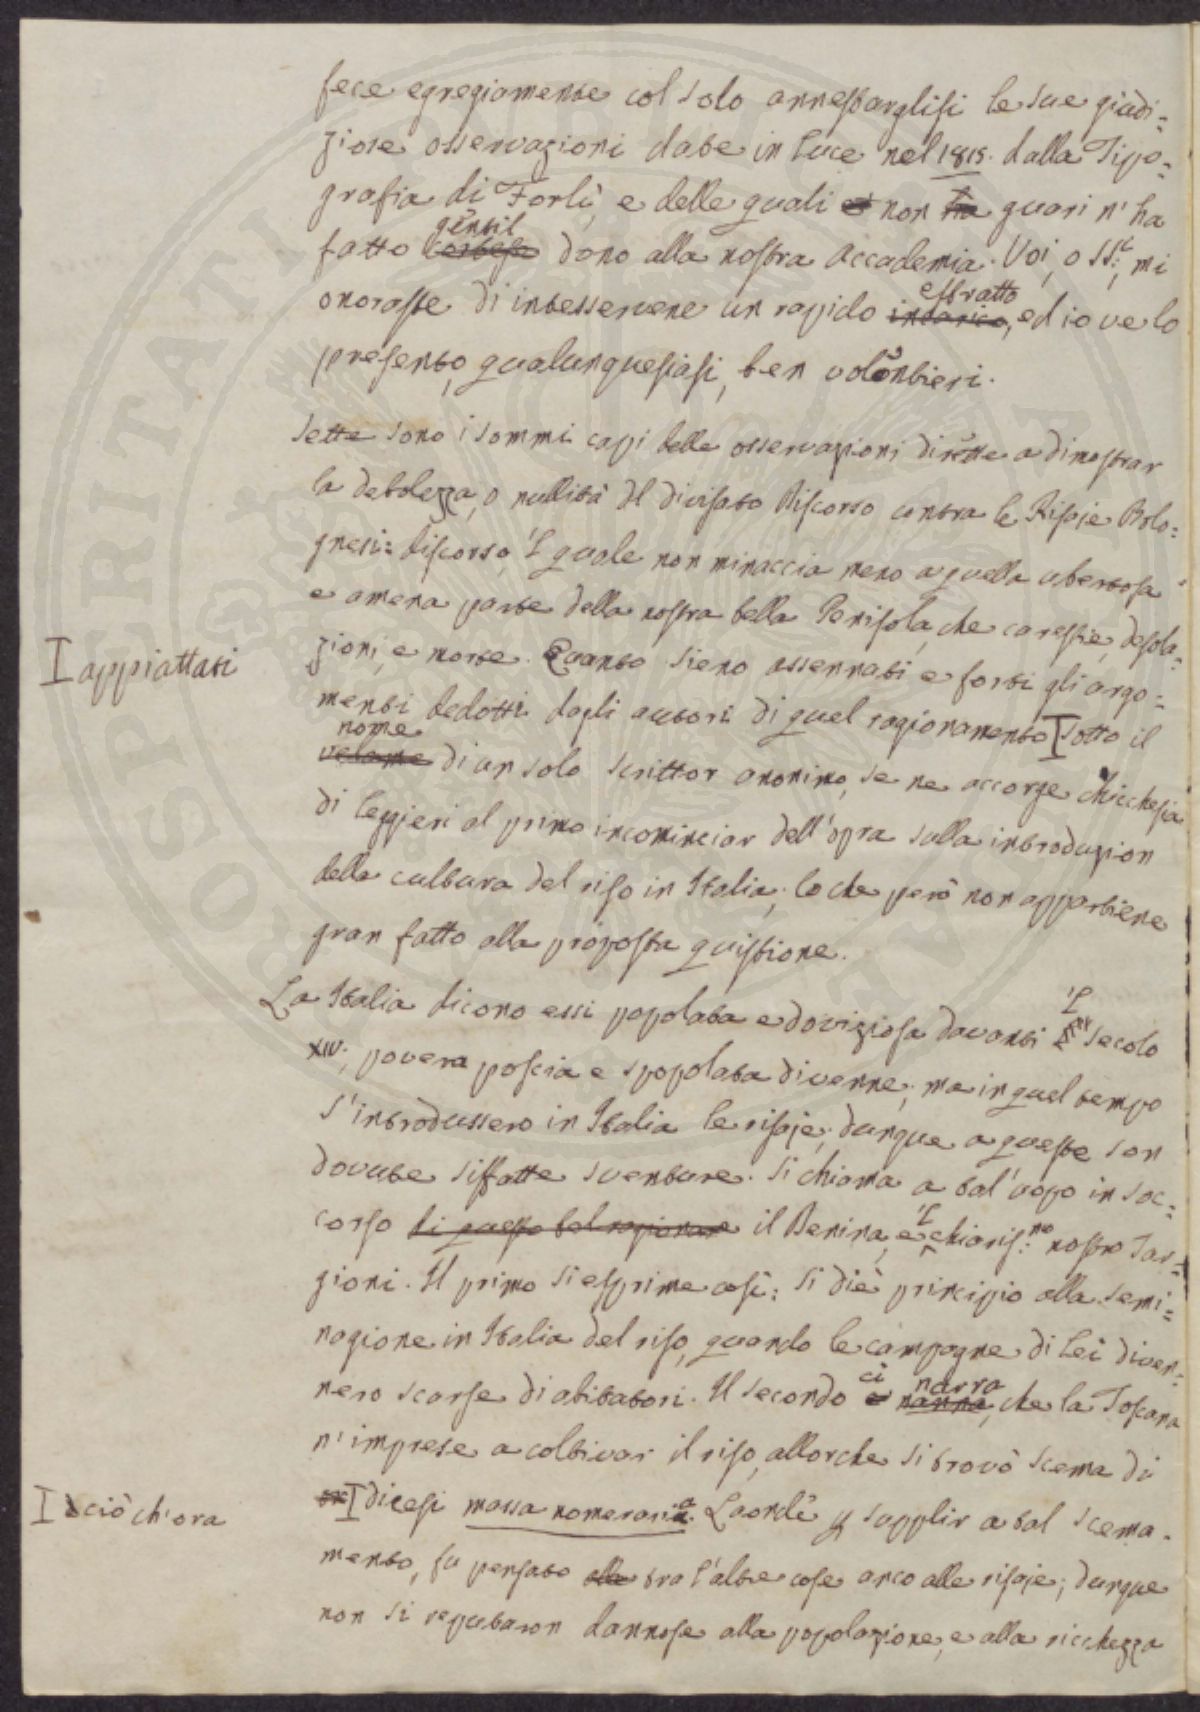 fece egregiamente col solo annestarglisi le sue giudi=
ziose osservazioni date in luce nel 1818. dalla Tipo=
grafia di Forlì, e delle quali non ha guari n'ha
gentil
fatto cortese dono alla nostra Accademia. Voi, o SS.i, mi
estratto
onoraste di intesservene un rapido incarico, ed io ve lo
presento, qualunquesiasi, ben volontieri.
Sette sono i sommi capi delle osservazioni dirette a dimostrar
la debolezza, o nullità del divisato Discorso contra le Risaje Bolo=
gnesi: discorso, 'l quale non minaccia meno a quella ubertosa
e amena parte della nostra bella Penisola, che carestie, desola=
zioni, e morte. Quanto sieno assennati e forti gli argo=
I appiattati
menti dedotti dagli autori di quel ragionamento I sotto il
nome
velame di un solo scrittor anonimo, se ne accorge chicchesia
di leggieri al primo incominciar dell'opra sulla introduzion
della cultura del riso in Italia; lo che però non appartiene
gran fatto alla proposta quistione.
La Italia dicono essi popolata e doviziosa davanti 'l secolo
XIV; povera poscia e spopolata divenne; ma in quel tempo
s'introdussero in Italia le risaje; dunque a queste son
dovute siffatte sventure. Si chiama a tal'uopo in soc=
corso di questo bel ragionare il Denina, e 'l chiaris.mo nostro Tar=
gioni. Il primo si esprime così: si diè principio alla semi=
nagione in Italia del riso, quando le campagne di lei diven=
nero scarse di abitatori. Il secondo ci narra, che la Toscana
n'imprese a coltivar il riso, allorchè si trovò scema di
I ciò ch'ora
I dicesi massa numeraria. Laonde p supplir a tal scema=
mento, fu pensato tra l'altre cose anco alle risaje; dunque
non si reputaron dannose alla popolazione, e alla ricchezza